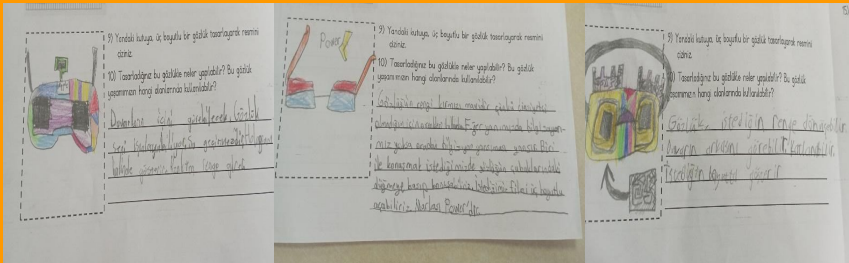 9) Yandaki kutuya, üç boyutlu bir gözlük tasarlayarak resmini
çiziniz.
10) Tasarladığınız bu gözlükle neler yapılabilir? Bu gözlük
yaşamımızın hangi alanlarında kullanılabilir?
Duvarların içini görebilecek. Gözlük
seni
halinde
Power
9) Yandaki kutuya, üç boyutlu bir gözlük tasarlayarak resmini
çiziniz.
10) Tasarladığınız bu gözlükle neler yapılabilir? Bu gözlük
yaşamımızın hangi alanlarında kullanılabilir?
Gözlüğün rengi kırmızı mavidir çünkü
Eğer yanımızda bilgisayarı-
mız yoksa bilgisayar yansıması yansır. Biri
ile konuşmak istediğimizde gözlüğün
düğmeye basıp konuşabiliriz. İstediğimiz filmi üç boyutlu
açabiliriz. Markası Power'dır.
9) Yandaki kutuya, üç boyutlu bir gözlük tasarlayarak resmini
çiziniz.
10) Tasarladığınız bu gözlükle neler yapılabilir? Bu gözlük
yaşamımızın hangi alanlarında kullanılabilir?
Gözlük, istediğin renge dönüşebilir.
Duvarın arkasını görebilir.
İstediğin boyutu gösterir